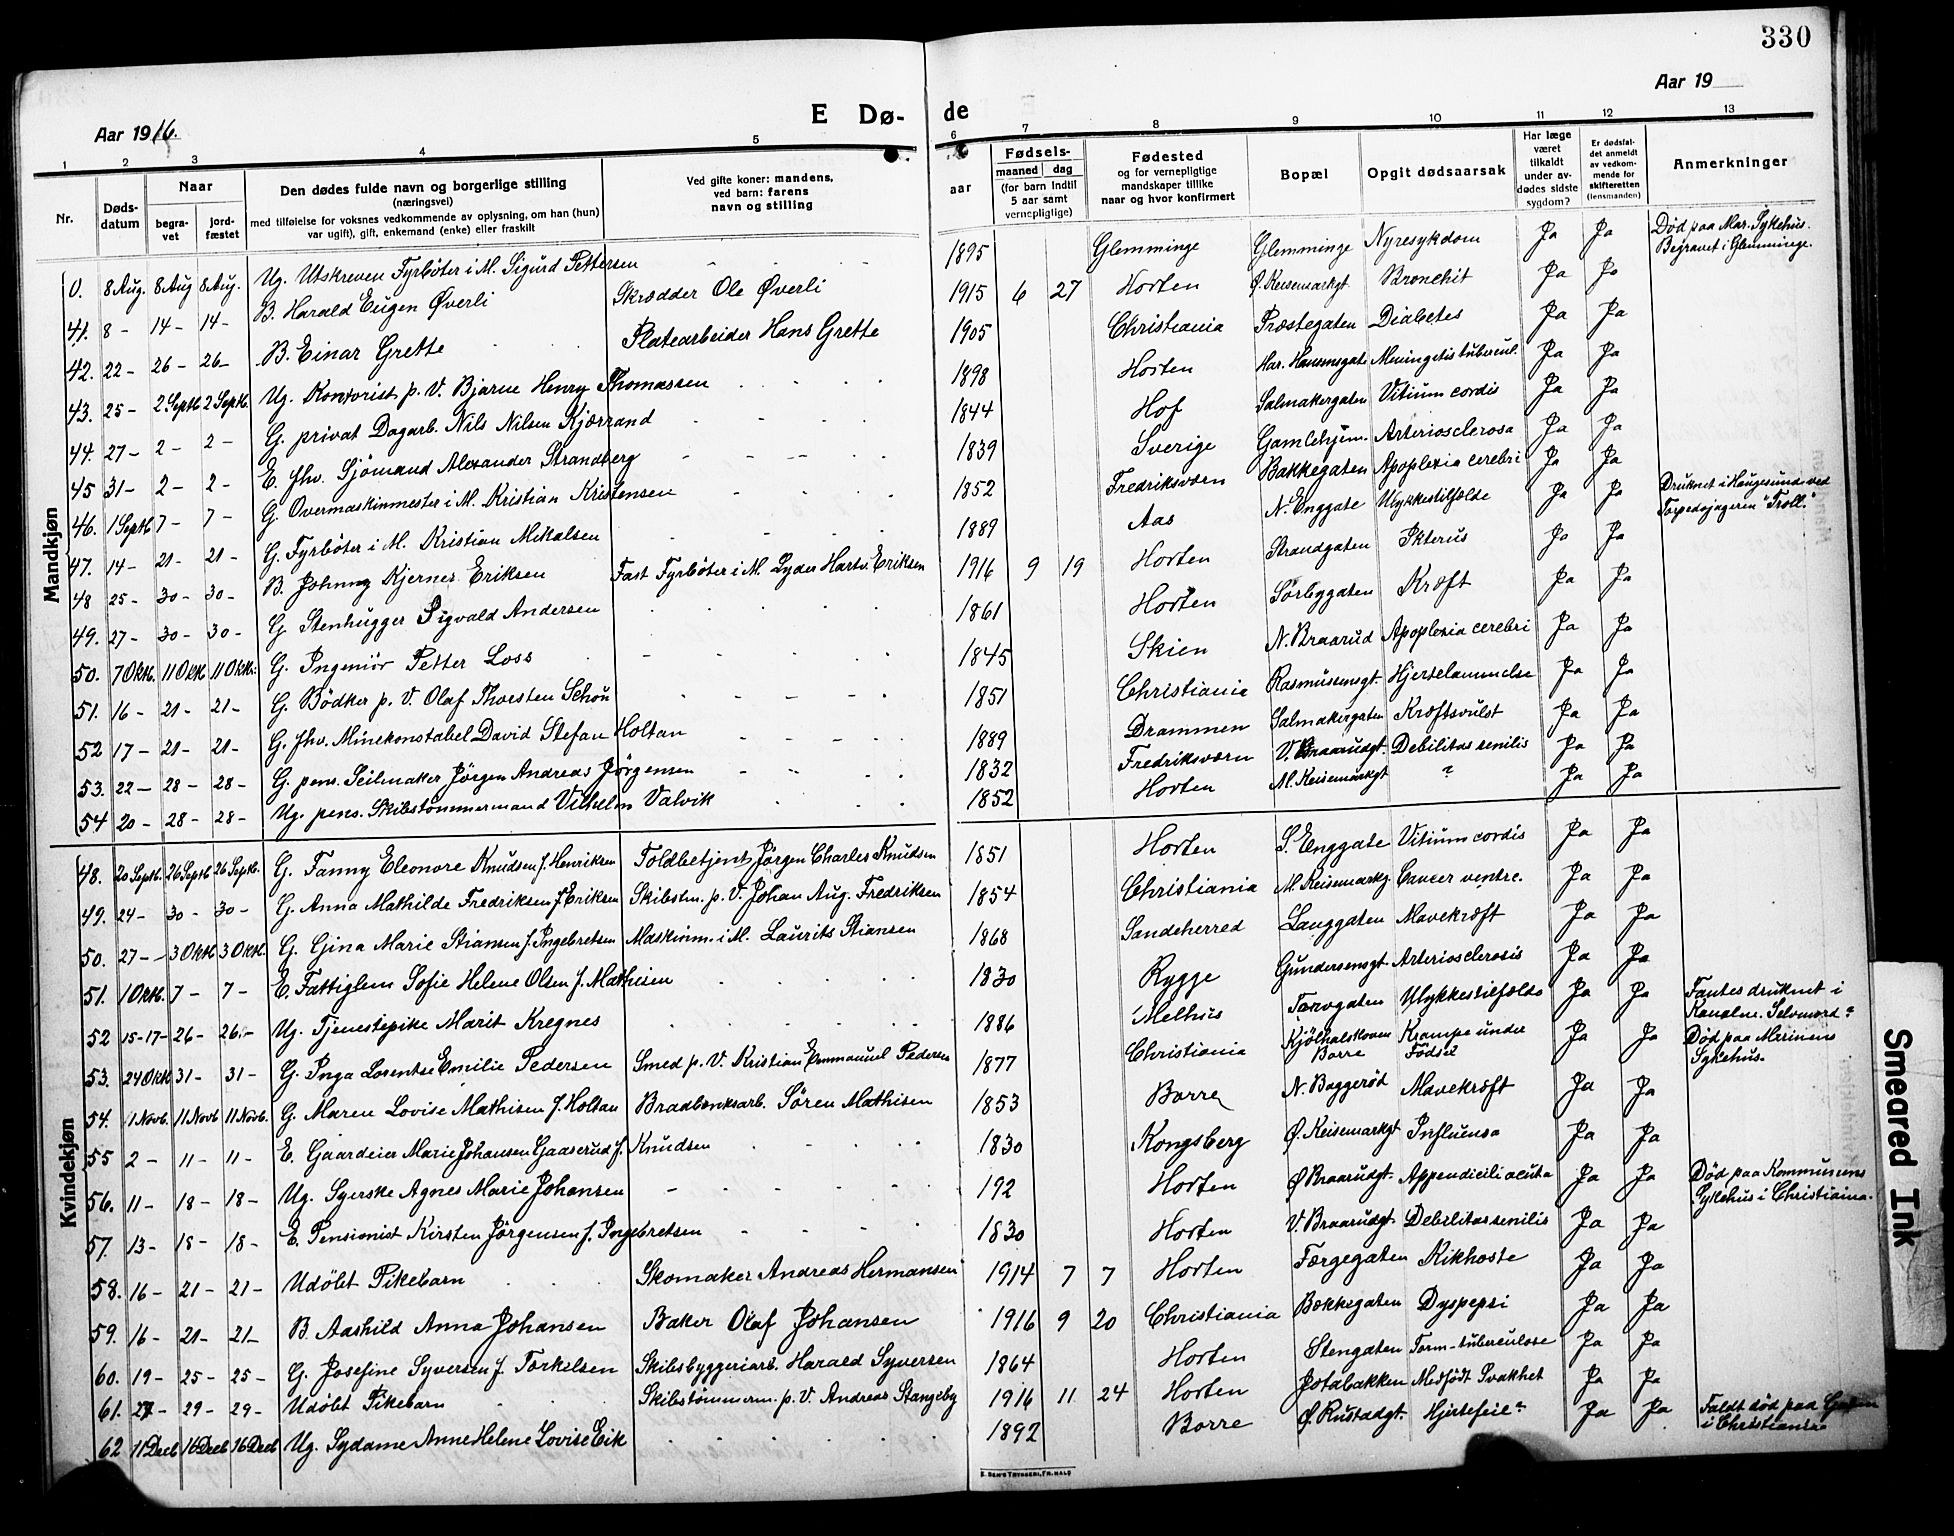 330
Aar 1916.
E Dø-
de
Aar 19
1 2 3 4 5 6 7 8 9 10 11 12 13
Nr.
Døds-datum
Naar
begra-vet
jord-fæstet
Den dødes fulde navn og borgerlige stilling
(næringsvei)
med tilføielse for voksnes vedkommende av oplysning, om han (hun)
var ugift), gift, enkemand (enke) eller fraskilt
Ved gifte koner: mandens,
ved barn: farens
navn og stilling
aar
Fødsels-
maaned dag
(for barn indtil
5 aar samt
vernepligtige)
Fødested
og for vernepligtige
mandskaper tillike
naar og hvor konfirmert
Bopæl
Opgit dødsaarsak
Har læge
været
tilkaldt
under av-
dødes sidste
sygdom?
Er dødsfal-
det anmeldt
av vedkom-
mende for
skifteretten
(lensmanden)
Anmerkninger
Mandkjøn
0. 8 Aug. 8 Aug 8 Aug. Ug. Utskreven Fyrbøter i M. Sigurd Pettersen 1895 Glemminge Glemminge Nyresykdom Ja Ja Død paa Mar. Sykehus. Begravet i Glemminge.
41. 8 - 14 - 14 - B. Harald Eugen Øverli Skrædder Ole Øverli 1915 6 27 Horten Ø. Keisemarkgt Bronchit Ja Ja
42. 22 - 26 - 26 - B. Einar Grette Platearbeider Hans Grette 1905 Christiania Præstegaten Diabetes Ja Ja
43. 25 - 2 Septb 2 Septb. Ug. Kontorist p. V. Bjarne Henry Thomassen 1898 Horten Har. Hansensgate Meningitis tubercul. Ja Ja
44. 27 - 2 - 2 - G. privat Dagarb. Nils Nilsen Kjærrand 1844 Hof Salmakergaten Vitium cordis Ja Ja
45 31 - 2 - 2 - E. fhv. Sjömand Alexander Strandberg 1839 Sverige Gamlehjem. Arteriosclerosa Ja Ja
46. 1 Septb 7 - 7 - G. Overmaskinmester i M. Kristian Kristensen 1852 Fredriksværn Bakkegaten Apoplexia cerebri Ja Ja
47. 14 - 21 - 21 - G. Fyrbøter i M. Kristian Mikalsen 1889 Aas N. Enggate Ulykkestilfælde Ja Ja Druknet i Haugesund ved Torpedojageren "Troll."
48 25 - 30 - 30 - B. Johnny Kjernes Eriksen Fast Fyrbøter i M. Lyder Hartv. Eriksen 1916 9 19 Horten Strandgaten Ikterus Ja Ja
49. 27 - 30 - 30 - G Stenhugger Sigvald Andersen 1861 Horten Sørbygaten Kræft Ja Ja
50. 7 Oktb. 11 Oktb 11 Oktb. G. Ingeniør Petter Loss 1845 Skien N. Braarud Apoplexia cerebri Ja Ja
51. 16 - 21 - 21 - G. Bödker p. V. Olaf Thorsten Schou 1851 Christiania Rasmussensgt. Hjertelammelse Ja Ja
52 17 - 21 - 21 - G. fhv. Minekonstabel David Stefan Holtan 1889 Drammen Salmakergaten Kræftsvulst Ja Ja
53. 22 - 28 - 28 - G. pens. Seilmaker Jörgen Andreas Jörgensen 1832 Fredriksværn V. Braarudgt. Debilitas senilis Ja Ja
54 20 - 28 - 28 - Ug. pens. Skibstömmermand Vilhelm Valvik 1852 Horten M. Keisemarkgt ? Ja Ja
Kvindekjøn
48. 20 Septb. 26 Septb 26 Septb. G. Fanny Eleonore Knudsen f. Henriksen Toldbetjent Jörgen Charles Knudsen 1851 Horten S. Enggate Vitium cordis Ja Ja
49. 24 - 30 - 30 - G. Anna Mathilde Fredriksen f Eriksen Skibstm. p. V. Johan Aug. Fredriksen 1854 Christiania M. Keisemarkg. Cancer ventre. Ja Ja
50. 27 - 3 Oktb 3 Oktb. G. Gina Marie Stiansen f. Ingebretsen Maskinm. i M. Laurits Stiansen 1868 Sandeherred Langgaten Mavekræft Ja Ja
51. 1 Oktb. 7 - 7 - E. Fattiglem Sofie Helene Olsen f. Mathisen 1830 Rygge Gundersensgt. Arteriosclerosis Ja Ja
52 15-17- 26 - 26 - Ug. Tjenestepike Marit Kregnes 1886 Melhus Torvgaten Ulykkestilfælde Ja Ja Fantes druknet i Kanalen. Selvmord?
53. 24 Oktb 31 - 31 - G. Inga Lorentse Emilie Pedersen Smed p. V. Kristian Emmanuel Pedersen 1877 Christiania Kjölhalskoven Borre Krampe under Fødsel Ja Ja Død paa Marinens Sykehus.
54. 1 Novb. 11 Novb 11 Novb. G. Maren Lovise Mathisen f. Holtan Bradbænksarb. Sören Mathisen 1853 Borre N. Baggerød Mavekræft Ja Ja
55 2 - 11 - 11 - E. Gaardeier Marie Johansen Gaaserud f. Knudsen 1830 Kongsberg Ø. Keisemarkgt Influensa Ja Ja
56. 11 - 18 - 18 - Ug. Syerske Agnes Marie Johansen 192 Horten Ø Braarudgt. Appendicili acuta Ja Ja Død paa Kommunens Sykehus i Christiania.
57. 13 - 18 - 18 - E. Pensionist Kirsten Jörgensen f. Ingebretsen 1830 Horten V. Braarudgt Debilitas senilis Ja Ja
58. 16 - 21 - 21 - Udöbt Pikebarn Skomaker Andreas Hermansen 1914 7 7 Horten Færgegaten Kikhoste Ja Ja
59. 16 - 21 - 21 - B. Aashild Anna Johansen Baker Olaf Johansen 1916 9 20 Christiania Bækkegaten Dyspepsi Ja Ja
60. 19 - 25 - 25 - G. Josefine Syversen f. Torkelsen Skibsbyggeriarb. Harald Syversen 1864 Horten Stengaten Tarm-tuberculose Ja Ja
61. 27 - 29 - 29 - Udöbt Pikebarn Skibstömmerm. p. V. Andreas Stangeby 1916 11 24 Horten Jotabakken Medfödt Svakhet Ja Ja
62 11 Decb 16 Decb 16 Decb Ug. Sydame Anne Helene Lovise Eik 1892 Borre Ø. Rustadgt. Hjertefeil? Ja Ja Faldt død paa i Christiania
E. Sem's Trykkeri, Fr.hald
Smeared Ink